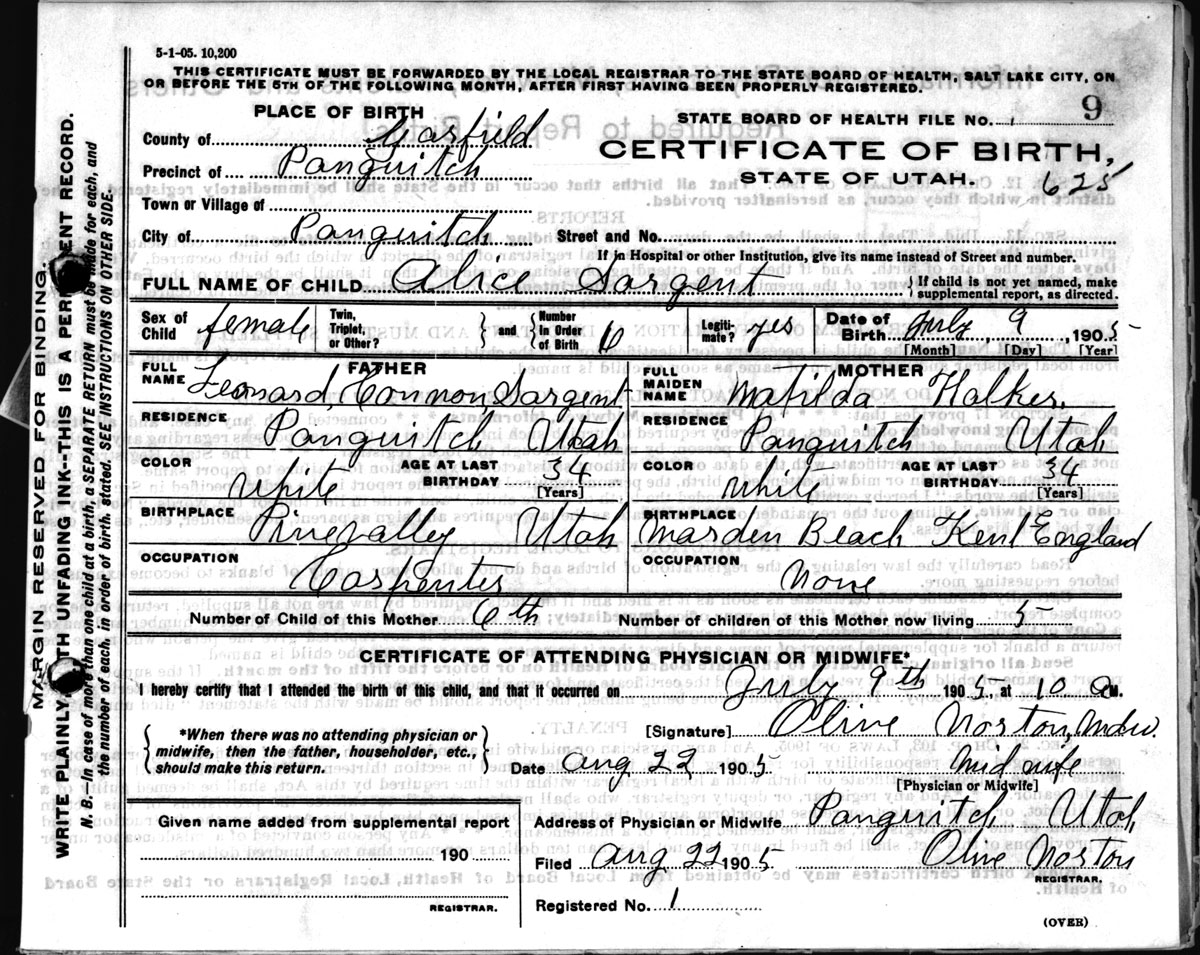 5-1-05. 10,200
THIS CERTIFICATE MUST BE FORWARDED BY THE LOCAL REGISTRAR TO THE STATE BOARD OF HEALTH, SALT LAKE CITY, ON
OR BEFORE THE 5TH OF THE FOLLOWING MONTH, AFTER FIRST HAVING BEEN PROPERLY REGISTERED.
PLACE OF BIRTH
STATE BOARD OF HEALTH FILE NO. 9
County of Garfield
CERTIFICATE OF BIRTH,
Precinct of Panguitch
STATE OF UTAH. 625
Town or Village of
City of Panguitch Street and No.
If in Hospital or other Institution, give its name instead of Street and number.
FULL NAME OF CHILD Alice Sargent { If child is not yet named, make
supplemental report, as directed.
Sex of Child female Twin, Triplet, or Other? } and { Number in Order of Birth 6 Legiti-mate? yes Date of Birth July 9, 1905
[Month] [Day] [Year]
FATHER MOTHER
FULL NAME Leonard Connon Sargent FULL MAIDEN NAME Matilda Halker.
RESIDENCE Panguitch Utah RESIDENCE Panguitch Utah
COLOR White AGE AT LAST BIRTHDAY 34 [Years] COLOR White AGE AT LAST BIRTHDAY 34 [Years]
BIRTHPLACE Pinevalley Utah BIRTHPLACE Marden Beach Kent England
OCCUPATION Carpenter OCCUPATION None
Number of Child of this Mother 6th Number of children of this Mother now living 5
CERTIFICATE OF ATTENDING PHYSICIAN OR MIDWIFE*
I hereby certify that I attended the birth of this child, and that it occurred on July 9th 1905, at 10 a M.
[Signature] Olive Norton, Midw.
{ *When there was no attending physician or
midwife, then the father, householder, etc.,
should make this return. }
Date Aug 22 1905. Midwife
[Physician or Midwife]
Given name added from supplemental report
Address of Physician or Midwife Panguitch Utah
190
Filed Aug 22 1905 Olive Norton
REGISTRAR.
REGISTRAR.
Registered No. 1
(OVER)
MARGIN RESERVED FOR BINDING.
WRITE PLAINLY WITH UNFADING INK--THIS IS A PERMANENT RECORD.
N. B.—In case of more than one child at a birth, a SEPARATE RETURN must be made for each, and
the number of each, in order of birth, stated. SEE INSTRUCTIONS ON OTHER SIDE.